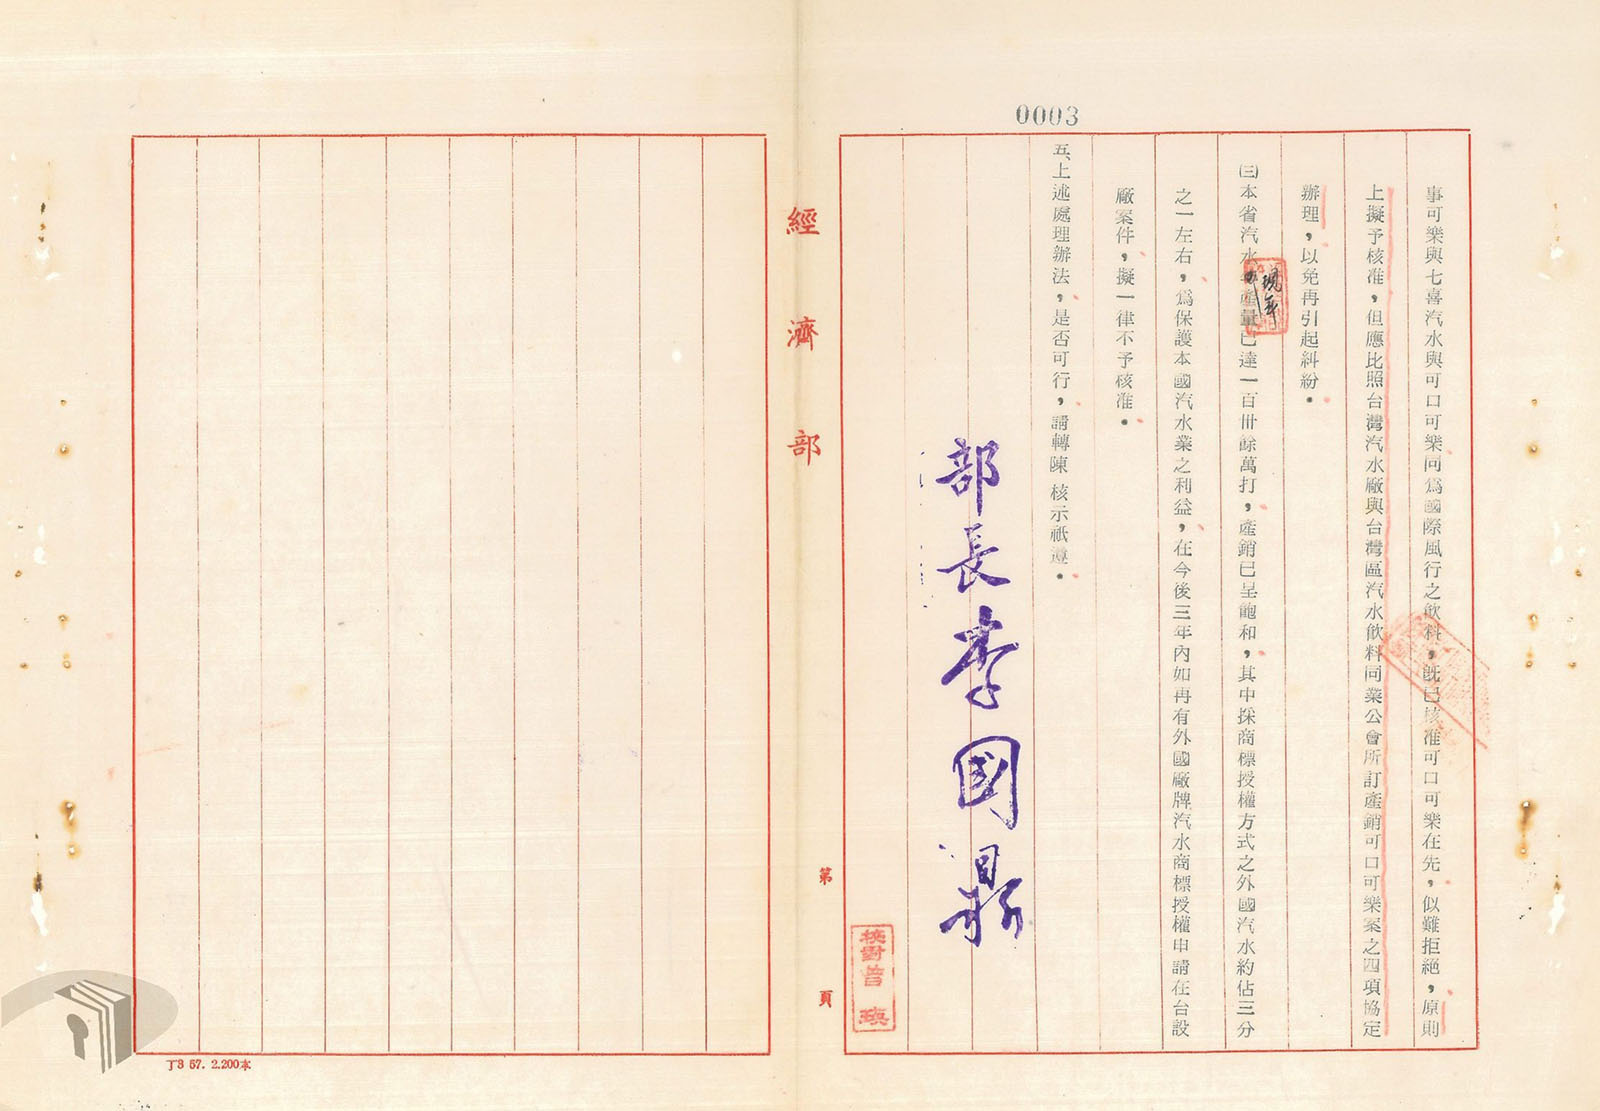 0003
事可樂與七喜汽水與可口可樂同爲國際風行之飲料，旣已核准可口可樂在先，似難拒絕，原則
上擬予核准，但應比照台灣汽水廠與台灣區汽水飲料同業公會所訂產銷可口可樂案之四項協定
辦理，以免再引起糾紛。
㈢本省汽水現年產量已達一百卅餘萬打，產銷已呈飽和，其中採商標授權方式之外國汽水約佔三分
之一左右，爲保護本國汽水業之利益，在今後三年內如再有外國廠牌汽水商標授權申請在台設
廠案件，擬一律不予核准。
五、上述處理辦法，是否可行，請轉陳 核示祇遵。
部長李國鼎
校對曾瑛
第 頁
經濟部
丁3 57. 2.200本